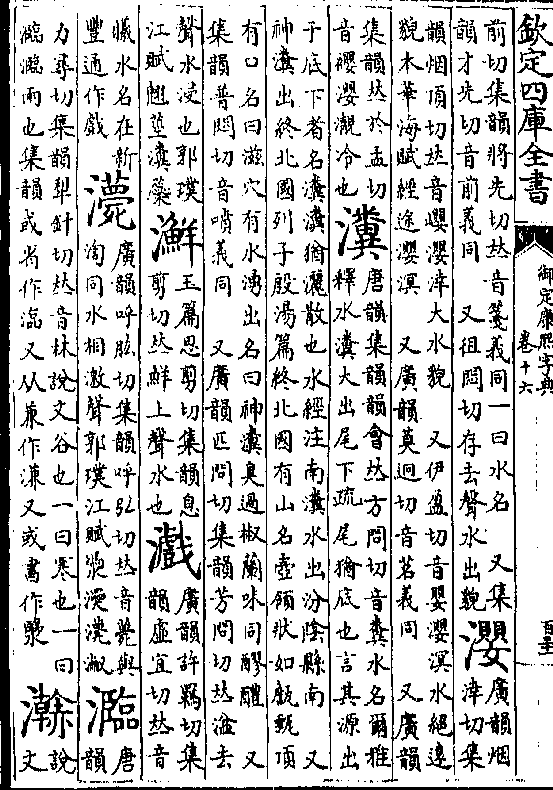 欽定四庫全書
御定康熙字典
卷十六
前切集韻將先切𠀤音箋義同一曰水名　又集
韻才先切音前義同　又徂悶切存去聲水出貌
瀴
廣韻烟
涬切集
韻烟頂切𠀤音瀴涬大水貌　又伊盈切音嬰瀴溟水絕遠
貌木華海賦經途瀴溟　又廣韻莫迥切音茗義同　又廣韻
集韻𠀤於孟切
音瀴冷也
瀵
唐韻集韻韻會𠀤方問切音糞水名爾雅
釋水瀵大出尾下疏尾猶底也言其源出
于底下者名瀵瀵猶灑散也水經注南瀵水出汾陰縣南　又
神瀵出終北國列子殷湯篇終北國有山名壺領狀如甔甀頂
有口名曰滋穴有水湧出名曰神瀵臭過椒蘭味同醪醴　又
集韻普悶切音噴義同　又廣韻匹問切集韻芳問切𠀤湓去
聲水浸也郭璞
江賦翹莖瀵蘂
玉篇思剪切集韻息
剪切𠀤鮮上聲水也
廣韻許羈切集
韻虛宜切𠀤音
水名在新
豐通作戲
廣韻呼肱切集韻呼弘切𠀤音薨與
渹同水相激聲郭璞江賦
瀶
唐
韻
力尋切集韻犁針切𠀤音林說文谷也一曰寒也一曰
瀶瀶雨也集韻或省作又从廉作濂又或書作
說
文